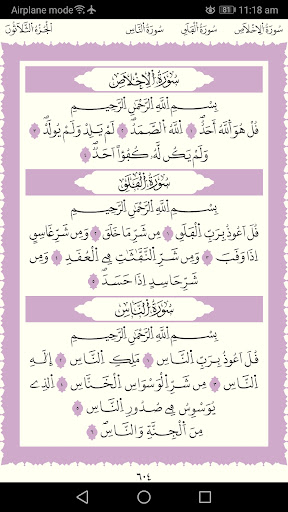 Airplane mode 81 11:18 am
سُورَةُ الإِخْلَاصِ سُورَةُ الْفَلَقِ سُورَةُ النَّاسِ الْجُزْءُ الثَّلَاثُونَ
سُورَةُ الْإِخْلَاصِ
بِسْمِ اِللَّهِ اِلرَّحْمَٰنِ اِلرَّحِيمِ
قُلْ هُوَ اَللَّهُ أَحَدٌ ١ اَللَّهُ اُلصَّمَدُ ٢ لَمْ يَلِدْ وَلَمْ يُولَدْ ٣
وَلَمْ يَكُن لَّهُۥ كُفُؤًا اَحَدٌ ٤
سُورَةُ الْفَلَقِ
بِسْمِ اِللَّهِ اِلرَّحْمَٰنِ اِلرَّحِيمِ
قُلَ اَعُوذُ بِرَبِّ اِلْفَلَقِ ١ مِن شَرِّ مَا خَلَقَ ٢ وَمِن شَرِّ غَاسِقٍ
اِذَا وَقَبَ ٣ وَمِن شَرِّ اِلنَّفَّٰثَٰتِ فِے اِلْعُقَدِ ٤ وَمِن
شَرِّ حَاسِدٍ اِذَا حَسَدَ ٥
سُورَةُ النَّاسِ
بِسْمِ اِللَّهِ اِلرَّحْمَٰنِ اِلرَّحِيمِ
قُلَ اَعُوذُ بِرَبِّ اِلنَّاسِ ١ مَلِكِ اِلنَّاسِ ٢ إِلَٰهِ
اِلنَّاسِ ٣ مِن شَرِّ اِلْوَسْوَاسِ اِلْخَنَّاسِ ٤ اِلذِے
يُوَسْوِسُ فِے صُدُورِ اِلنَّاسِ ٥
مِنَ اَلْجِنَّةِ وَالنَّاسِ ٦
٦٠٤